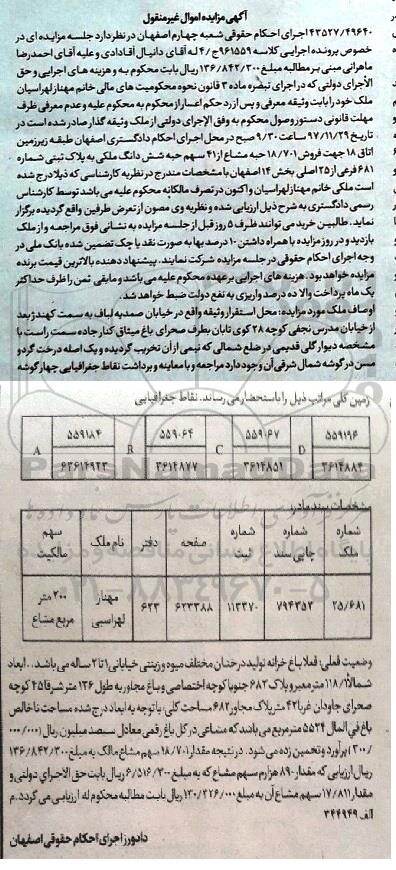 آگهی مزایده اموال غیرمنقول
۴۳۵۲۷/۴۹۶۴۰ اجرای احکام حقوقی شعبه چهارم اصفهان در نظر دارد جلسه مزایده ای در
خصوص پرونده اجرایی کلاسه ۹۶۱۵۵۹ ج/۴ له آقای دانیال آقادادی و علیه آقای احمدرضا
ماهرانی مبنی بر مطالبه مبلغ ۱۳۶/۸۴۲/۳۰۰ ریال بابت محکوم به و هزینه های اجرایی و حق
الأجرای دولتی که در اجرای تبصره ماده ۳ قانون نحوه محکومیت های مالی خانم مهناز لهراسبیان
ملک خود را بابت وثیقه معرفی و پس از رد حکم اعسار از محکوم به محکوم علیه و عدم معرفی ظرف
مهلت قانونی دستور وصول محکوم به وفق الإجرای دولتی از ملک وثیقه گذار صادر شده است در
تاریخ ۹۷/۱۱/۲۹ ساعت ۹/۳۰ صبح در محل اجرای احکام دادگستری اصفهان طبقه زیرزمین
اتاق ۱۸ جهت فروش ۱۸/۷۰۱ حبه مشاع از ۴۱ سهم حبه شش دانگ ملکی به پلاک ثبتی شماره
۶۸۱ فرعی از ۲۵ اصلی بخش ۱۴ اصفهان با مشخصات مندرج در نظریه کارشناسی که ذیلا درج شده
است ملکی خانم مهناز لهراسبیان واکنون در تصرف مالکانه محکوم علیه می باشد توسط کارشناس
رسمی دادگستری به شرح ذیل ارزیابی شده و نظریه وی مصون از تعرض طرفین واقع گردیده برگزار
نماید. طالبین خرید می توانند ظرف ۵ روز قبل از جلسه مزایده به نشانی فوق مراجعه و از ملک
بازدید و در روز مزایده با همراه داشتن ۱۰ درصد بها به صورت نقد یا چک تضمین شده بانک ملی در
وجه اجرای احکام حقوقی در جلسه مزایده شرکت نمایند. پیشنهاد دهنده بالاترین قیمت برنده
مزایده خواهد بود. هزینه های اجرایی بر عهده محکوم علیه می باشد و مابقی ثمن را ظرف حداکثر
یک ماه پرداخت والا ده درصد واریزی به نفع دولت ضبط خواهد شد.
اوصاف ملک مورد مزایده: محل استقرار وثیقه واقع در خیابان صمدیه لباف به سمت کهندژ بعد
از خیابان مدرس نجفی کوچه ۲۸ کوی تابان بطرف صحرای باغ میثاق کنار جاده سمت راست با
مشخصه دیوار گلی قدیمی در ضلع شمالی که نیمی از آن تخریب گردیده و یک اصله درخت گردو
مسن در گوشه شمال شرقی آن وجود دارد مراجعه و با معاینه و برداشت نقاط جغرافیایی چهار گوشه
زمین کلی مراتب ذیل را باستحضار می رساند. نقاط جغرافیایی
A ۵۵۹۱۸۴ B ۵۵۹۰۶۴ C ۵۵۹۰۶۷ D ۵۵۹۱۹۶
۳۶۱۴۹۲۳ ۳۶۱۴۸۷۷ ۳۶۱۴۸۵۱ ۳۶۱۴۸۸۴
مشخصات سند مادر:
شماره ملک شماره چاپی سند شماره ثبت صفحه دفتر نام ملک سهم مالکیت
۲۵/۶۸۱ ۷۹۴۳۵۳ ۱۱۳۳۷۰ ۶۲۳۳۸۸ ۶۲۳ مهناز لهراسبی ۲۰۰ متر مربع مشاع
وضعیت فعلی: فعلا باغ خزانه تولید درختان مختلف میوه و زینتی خیابانی ۱ تا ۲ ساله می باشد.. ابعاد
شمالاً ۱۱۸/۱ متر ممبر و پلاک ۶۸۳ جنوبا کوچه اختصاصی و باغ مجاور به طول ۱۳۶ متر شرقا ۴۵ کوچه
صحرای جاودان غربا ۴۲ متر پلاک مجاور ۶۸۲ مساحت کلی: با توجه به ابعاد درج شده مساحت ناخالص
باغ فی المال ۵۵۳۴ متر مربع می باشد که مشاعی در کل باغ رقمی معادل سیصد میلیون ریال (۰۰۰/۰۰۰
/۳۰۰) برآورد و تخمین زده می شود. در نتیجه مقدار ۱۸/۷۰۱ سهم مشاع مالک به مبلغ ۱۳۶/۸۴۲/۳۰۰
ریال ارزیابی که مقدار ۸۹۰ هزارم سهم مشاع که به مبلغ ۶/۵۱۶/۳۰۰ ریال بابت حق الاجرای دولتی و
مقدار ۱۷/۸۱۱ سهم مشاع آن به مبلغ ۱۳۰/۳۲۶/۰۰۰ ریال بابت مطالبه محکوم له ارزیابی می گردد. م
الف ۳۴۴۹۴۹
دادورز اجرای احکام حقوقی اصفهان
ParsNamadData
۰۲۱-۸۸۳۴۹۶۷۰-۵